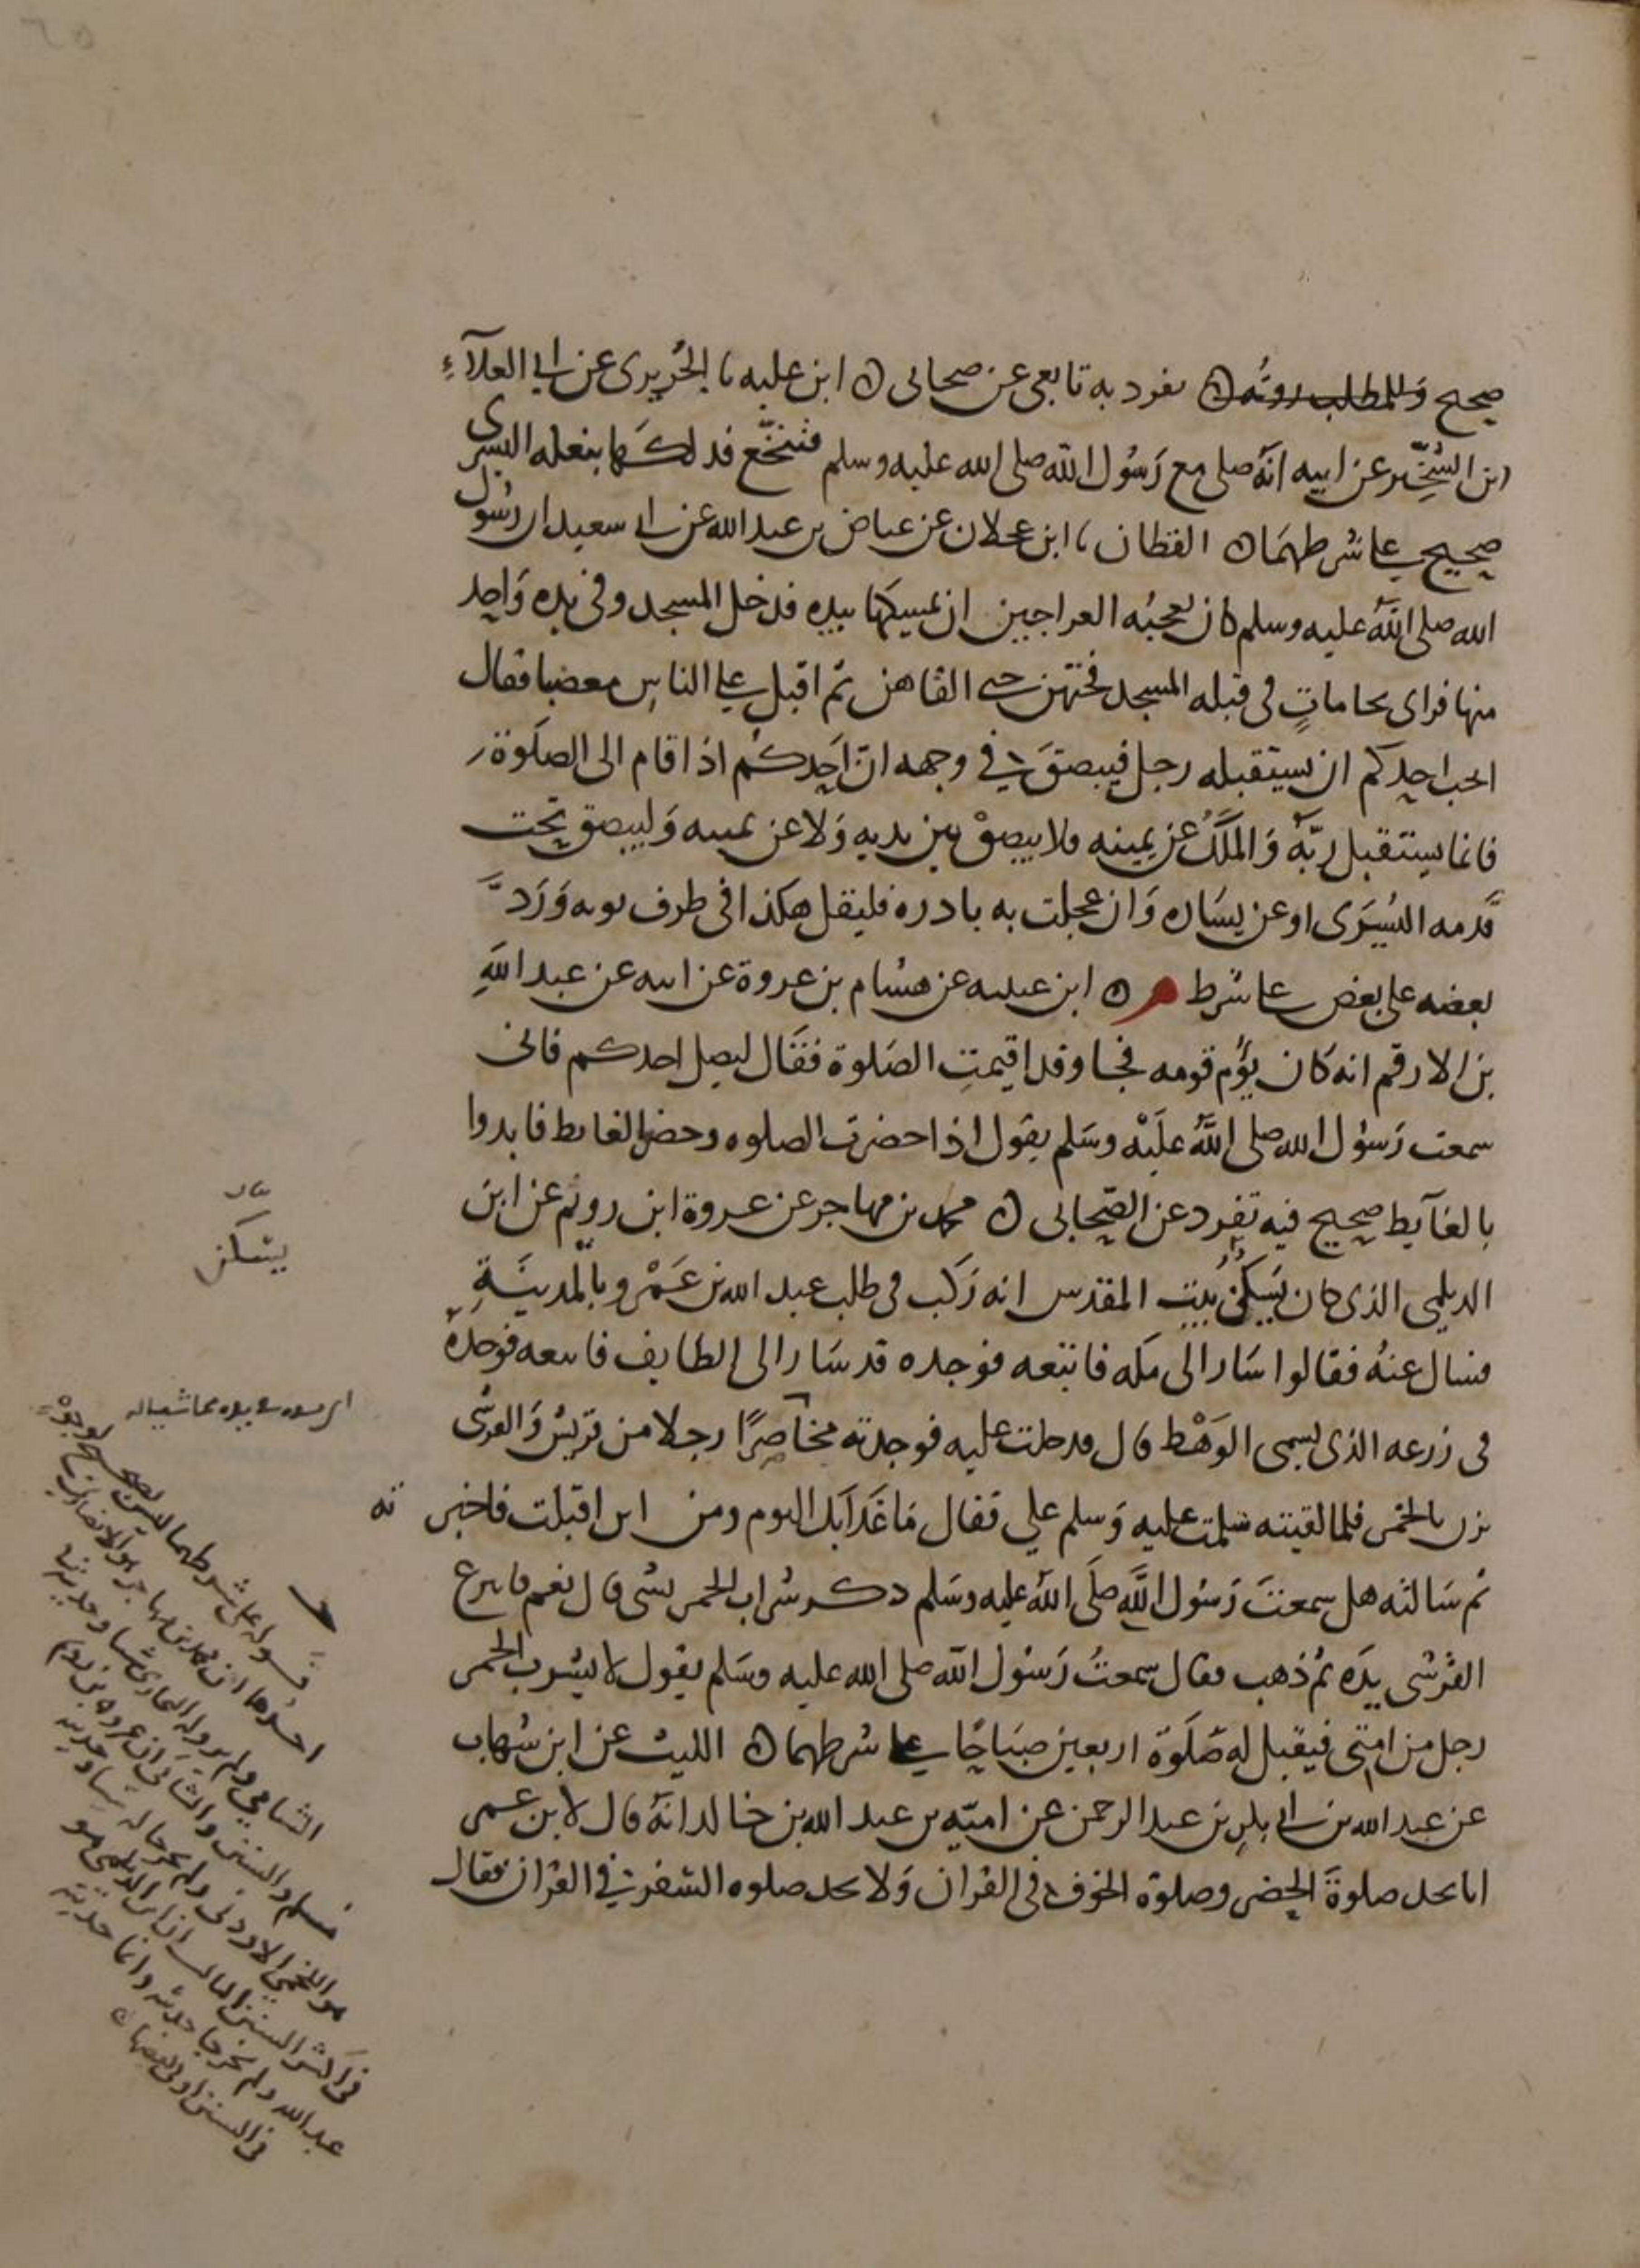 صحيح وللمطلب رؤية ه تفرد به تابعي عن صحابي ه ابن علية نا الجُريري عن ابي العلآءِ
ابن الشخِّير عن ابيه انه صلى مع رَسُول الله صلى الله عليه وسلم فتنخّع فدلكها بنعله اليسرى
صحيح على شرطهما ه القطان نا ابن عجلان عن عياض بن عبد الله عن ابي سعيد ان رسُول
الله صلى الله عليه وسلم كان يعجبُه العراجين ان يمسكها بيده فدخل المسجد وفي يده وَاحد
منها فراى نخاماتٍ في قبله المسجد فحتهن حتى القاهن ثم اقبل على الناس مغضبا فقال
ايحب احدكم ان يستقبله رجل فيبصقَ في وجهه ان اَحدكم اذا قام الى الصلَوة
فانما يستقبل ربّه وَالملَكُ عن يمينه فلا يبصقْ بين يديه وَلا عن يمينه وَليبصق تحت
قَدمه اليُسرَى او عن يسَاره وَان عجلت به بادره فليقل هكذا في طرف ثوبه وَرَدَّ
بعضه على بعض على شرط م ه ابن عيينه عن هشام بن عروة عن ابيه عن عبد اللهِ
بن الارقم انه كان يؤُم قومه فجا وقد اقيمتِ الصَلوة فقَال ليصل احدكم فانى
سمعت رَسُول الله صلى اللهُ علَيْه وسَلم يقول اذا حضرت الصلوه وحضر الغايط فابدوا
بالغآيط صحيح فيه تفرد عن الصّحابى ه محمد بن مهاجر عن عروة ابن رويم عن ابن
الديلمي الذى كان يَسكُنُ بيت المقدس انه رَكب في طلب عبد الله بن عَمْرو بالمدينَةِ
فسال عنهُ فقالوا سَار الى مكه فاتبعه فوجده قد سَار الى الطايف فاتبعه فوجدهُ
في زرعه الذى يسمى الوَهْط قال فدخلت عليه فوجدته مخاصِرًا رجلا من قريش وَالقرشى
يزن بالخمر فلما لقيته سَلمت عليه وَسلم علي فقال مَا غَدَا بك اليوم ومن اين اقبلت فاخبر ته
ثم سَالته هل سمعتَ رَسُول اللَّهِ صلَى الله عليه وسَلم ذكر شراب الخمر بشى قال نعم فانتزع
القرُشى يدَه ثم ذهب فقال سمعتُ رَسُول الله صلى الله عليه وسَلم يقول لا يشرب الخمر
رجل من امتى فيقبل له صَلَوة اربعين صبَاحًا على شرطهما ه الليث عن ابن شهاب
عن عبد الله بن ابي بكر بن عبد الرحمن عن اميّه بن عبد الله بن خالد انهُ قال لابن عمر
انا نجد صلوةَ الحضر وصلوة الخوف في القران وَلا نجد صلوه السَفر في القران فقال
يسكن
قوله على شرطهما ليس بصحيح لوجوهٍ
احدها ان محمد بن مهاجر هو الانصاري
الشامي ولم يرو له البخارى شيا وحديثه في
مسلم والسنن والثاني ان عروه بن رويم
هو اللخمي الاردني ولم يخرجا له شيا وحديثه
في اكثر السنن الثالث ان ابن الديلمي هو
عبد الله ولم يخرجا حديثه وانما حديثه
في السنن او في بعضها ه